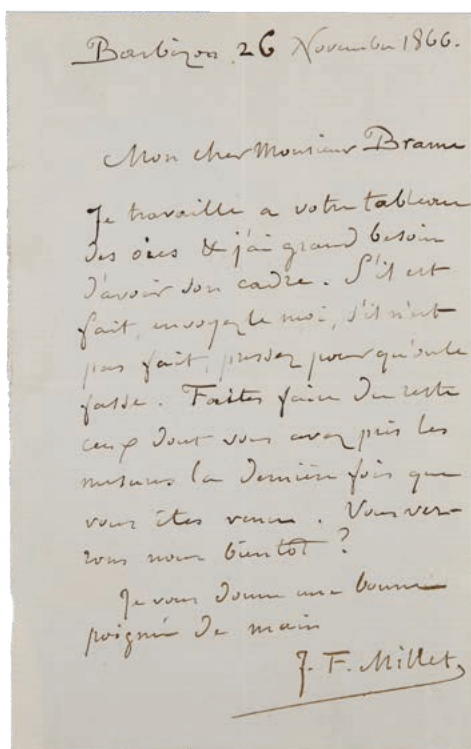 Barbizon 26 Novembre 1866.
Mon cher Monsieur Brame
Je travaille a votre tableau
des oies & j'ai grand besoin
d'avoir son cadre. S'il est
fait, envoyez le moi, s'il n'est
pas fait, pressez pour qu'on le
fasse. Faites faire du reste
ceux dont vous avez pris les
mesures la dernière fois que
vous êtes venu. Vous ver-
rons nous bientôt ?
Je vous donne une bonne
poignée de main
J. F. Millet